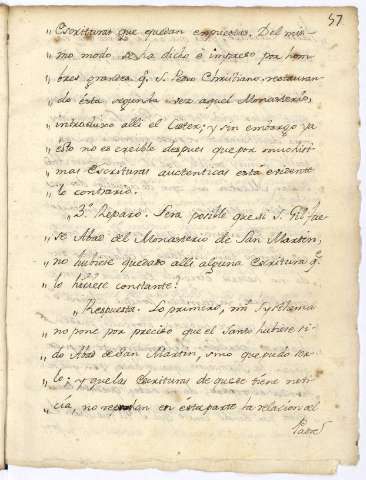 57
„ Escrituras que quedan expuestas. Del mis-
„ mo modo se ha dicho è impreso por hom-
„ bres grandes q.e S. Pedro Christiano, restauran-
„ do ésta segunda vez aquel Monasterio,
„ introduxo alli el Cister; y sin embargo ya
„ esto no es creible despues que por muchisi-
„ mas Escrituras autenticas está evidente
„ lo contrario.
„ 3.º Reparo. Sera posible que si S. Gil fue-
„ se Abad del Monasterio de San Martin,
„ no hubiese quedado alli alguna Escritura q.e
„ lo hiciese constante?
„ Respuesta. Lo primero, mi Systhema
„ no pone por preciso que el Santo hubiese si-
„ do Abad de San Martin, sino que pudo ser-
„ lo; y que las Escrituras de que se tiene noti-
„ cia, no repugnan en ésta parte la relacion del
Padre